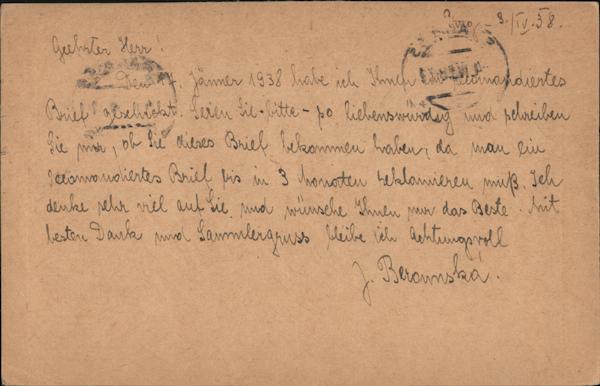 Brno 3./IV. 38.
Geehrter Herr!
Den 17. Jänner 1938 habe ich Ihnen ein recomandiertes
Brief geschickt. Seien Sie - bitte - so liebenswürdig und schreiben
Sie mir, ob Sie dieses Brief bekommen haben, da man ein
recomandiertes Brief bis in 3 Monaten reklamieren muß. Ich
denke sehr viel auf Sie und wünsche Ihnen nur das Beste. Mit
besten Dank und Sammlergruss bleibe ich achtungsvoll
J. Berounská.